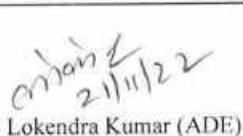 21/11/22
Lokendra Kumar (ADE)